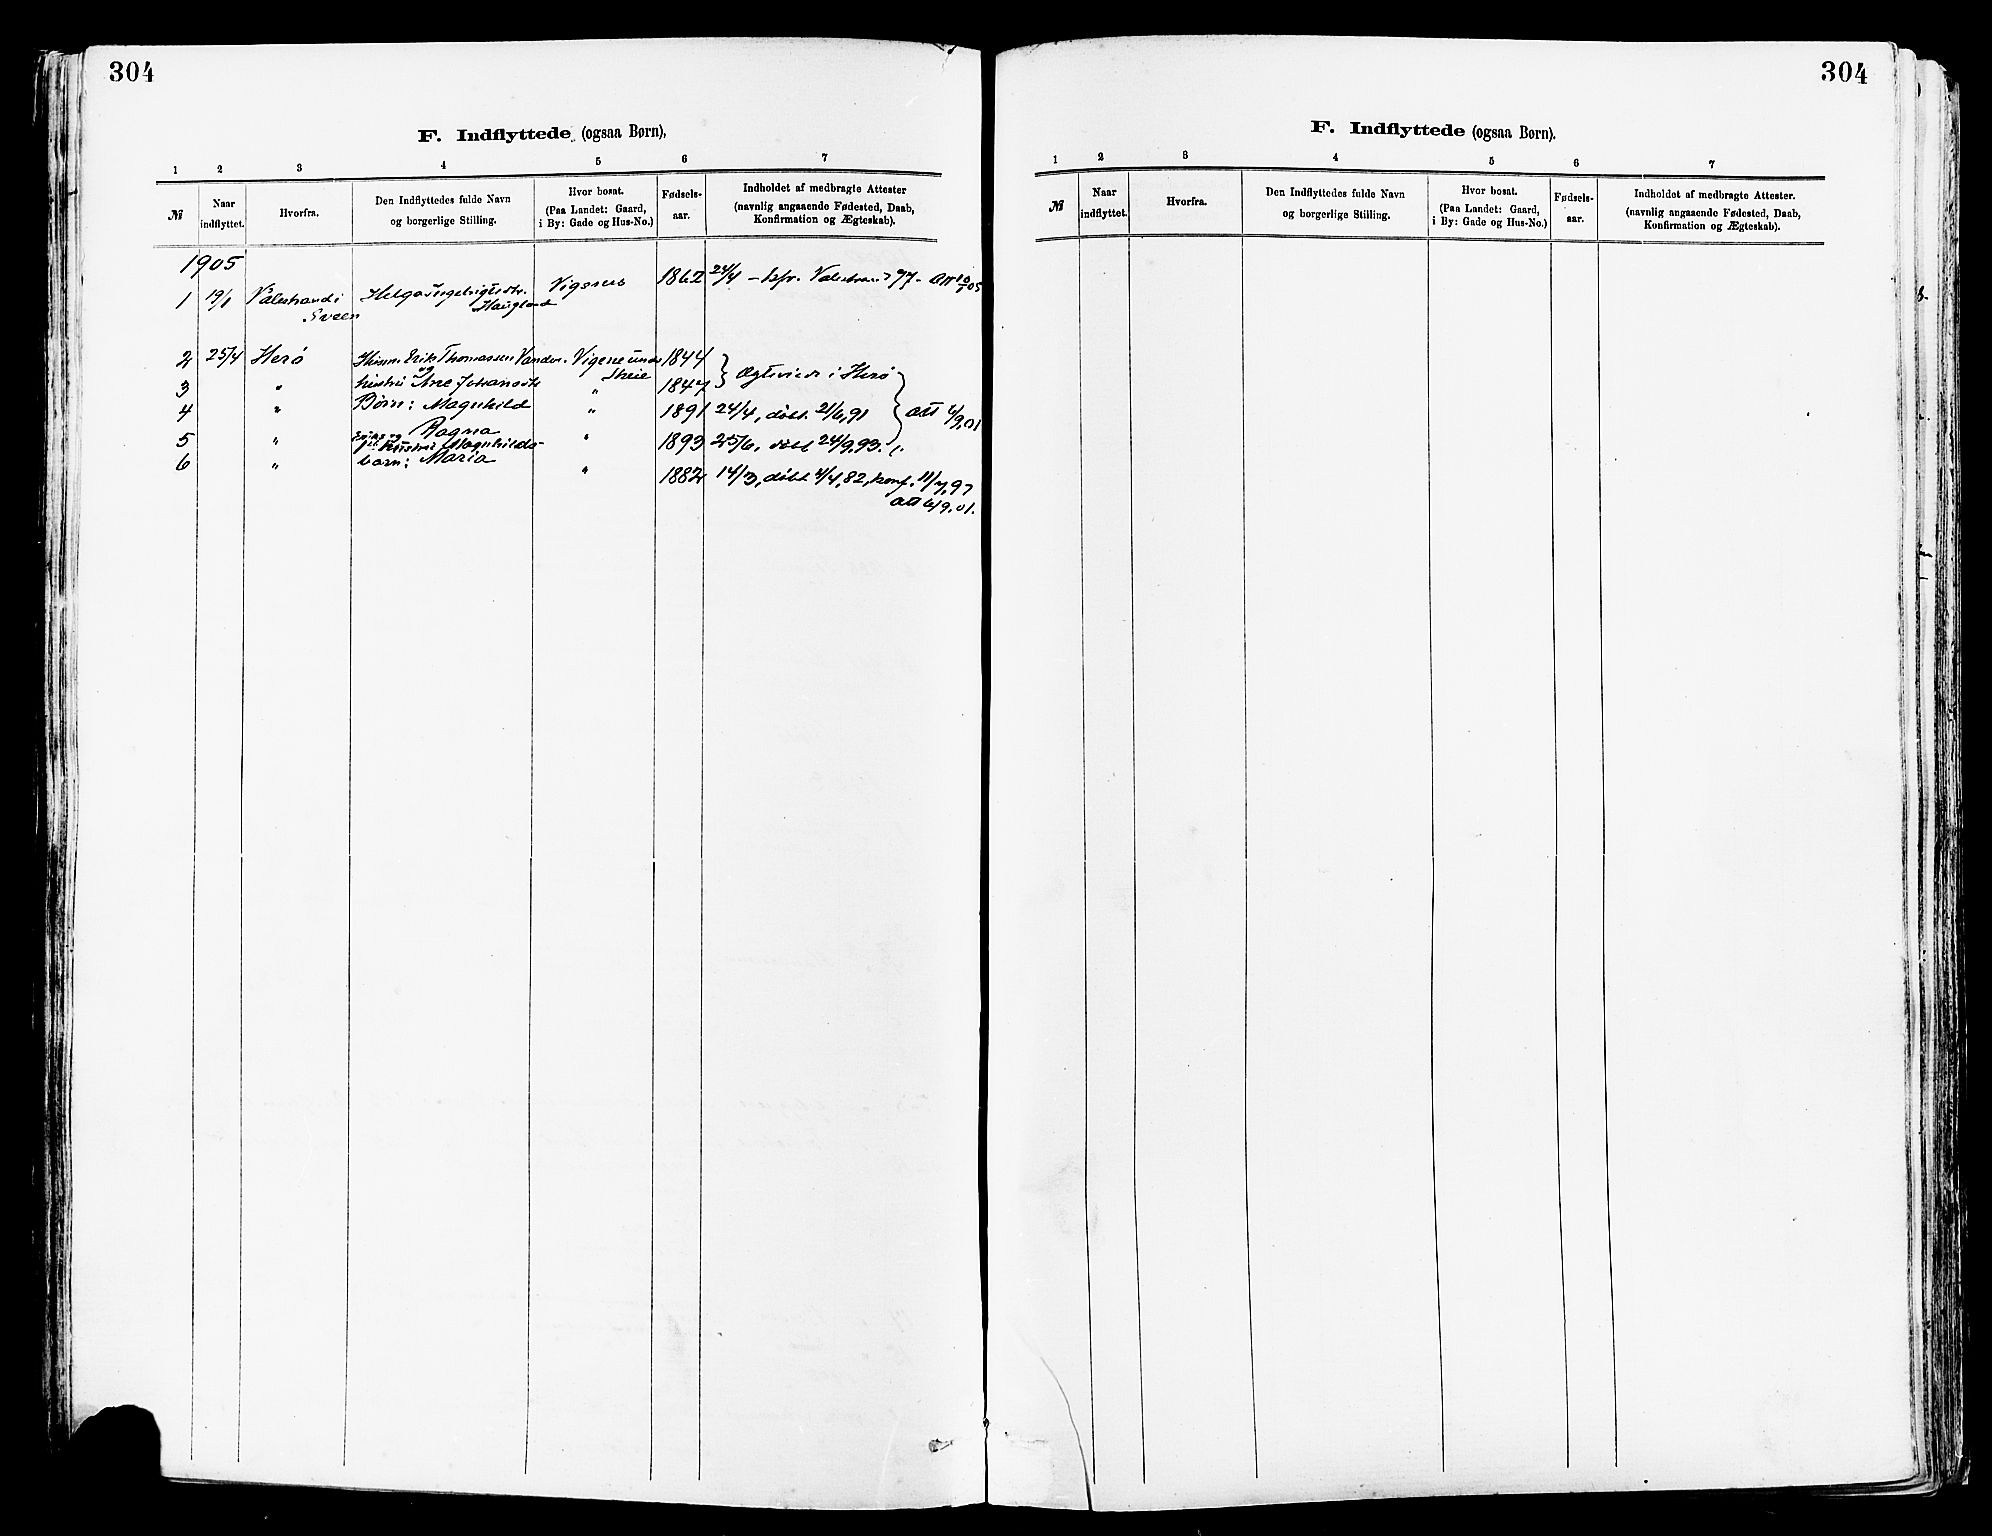 304
F. Indflyttede (ogsaa Børn),
1 2 3 4 5 6 7
№ Naar indflyttet. Hvorfra. Den Indflyttedes fulde Navn og borgerlige Stilling. Hvor bosat. (Paa Landet: Gaard, i By: Gade og Hus-No.) Fødsels-aar. Indholdet af medbragte Attester (navnlig angaaende Fødested, Daab, Konfirmation og Ægteskab).
1905
1 19/1 Valestrand i Helga Ingebrigtsdtr. Vigenes 1862 24/4 – kfr. Valestrand 97. Att
Sveen Haugland
2 25/4 Herø Husm. Erik Thomassen Vigene under 1844
3 " og hustru Ane Johansdtr. Skeie 1847 Ægteviede i Herø
4 " Børn: Magnhild " 1891 24/4, døbt 21/6,91 Att 6/9,01
5 " Ragna " 1893 25/6, døbt 24/9,93.
Eriks og Hustru Magnhilds
6 " barn: Maria " 1882 14/3, døbt 4/4,82, konf. 11/7,97
Att 6/9,01.
304
F. Indflyttede (ogsaa Børn).
1 2 3 4 5 6 7
№ Naar indflyttet. Hvorfra. Den Indflyttedes fulde Navn og borgerlige Stilling. Hvor bosat. (Paa Landet: Gaard, i By: Gade og Hus-No.) Fødsels-aar. Indholdet af medbragte Attester. (navnlig angaaende Fødested, Daab, Konfirmation og Ægteskab).